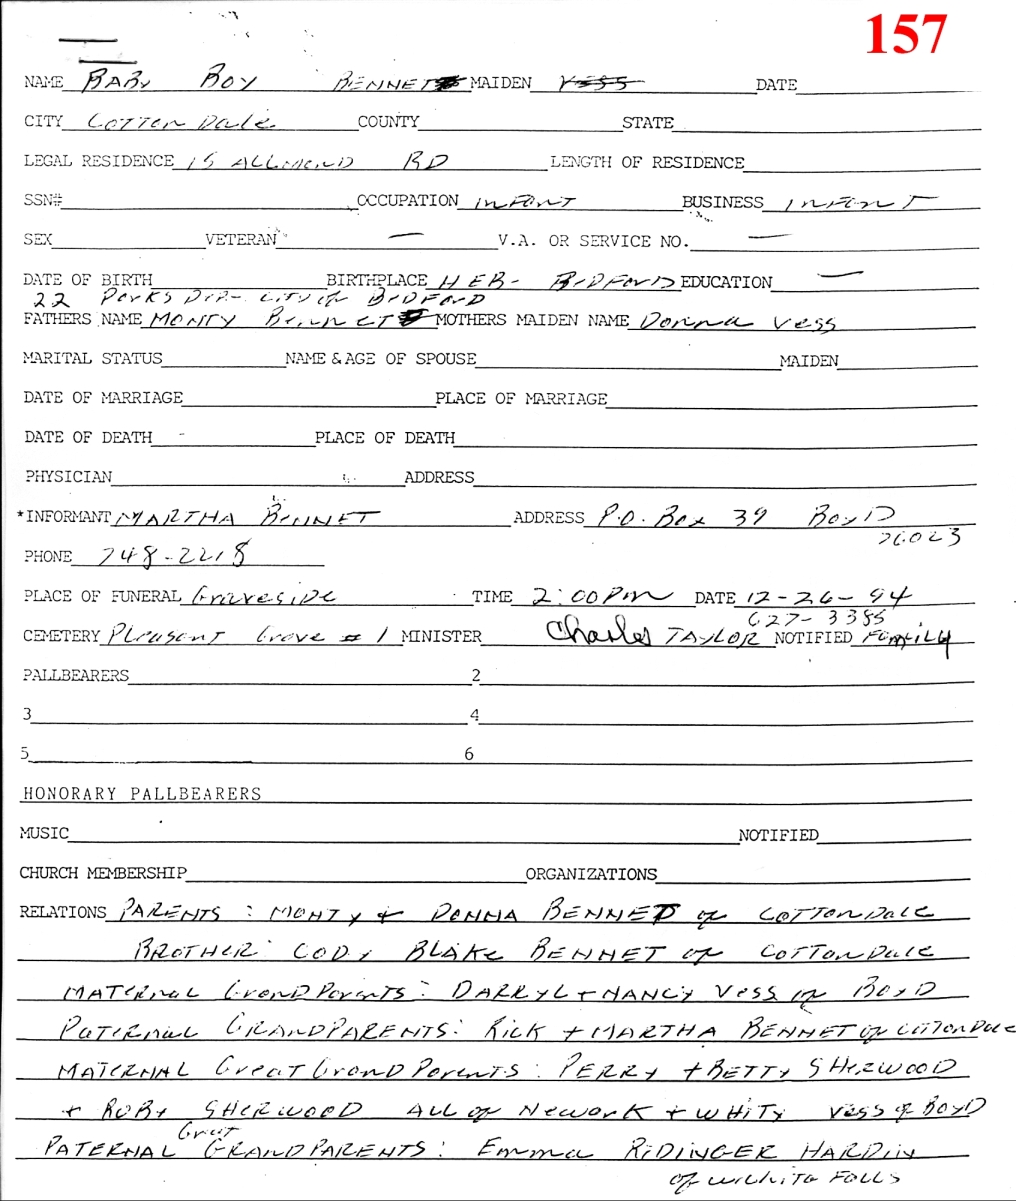 157
NAME BABY BOY BENNET MAIDEN VESS DATE
CITY COTTON DALE COUNTY STATE
LEGAL RESIDENCE 15 ALLMOND RD LENGTH OF RESIDENCE
SSN# OCCUPATION INFANT BUSINESS INFANT
SEX VETERAN — V.A. OR SERVICE NO. —
DATE OF BIRTH BIRTHPLACE HEB- BEDFORD EDUCATION —
22 PARKS DEP- CITY OF BEDFORD
FATHERS NAME MONTY BENNET MOTHERS MAIDEN NAME Donna Vess
MARITAL STATUS NAME & AGE OF SPOUSE MAIDEN
DATE OF MARRIAGE PLACE OF MARRIAGE
DATE OF DEATH PLACE OF DEATH
PHYSICIAN ADDRESS
*INFORMANT MARTHA BENNET ADDRESS P.O. Box 39 BOYD
76023
PHONE 748-2218
PLACE OF FUNERAL GRAVESIDE TIME 2:00 PM DATE 12-26-94
627-3385
CEMETERY Pleasant Grove #1 MINISTER Charles TAYLOR NOTIFIED FAMILY
PALLBEARERS 2
3 4
5 6
HONORARY PALLBEARERS
MUSIC NOTIFIED
CHURCH MEMBERSHIP ORGANIZATIONS
RELATIONS PARENTS: MONTY + DONNA BENNET of COTTONDALE
BROTHER: CODY BLAKE BENNET of COTTONDALE
MATERNAL GRANDPARENTS: DARRYL + NANCY VESS of BOYD
PATERNAL GRANDPARENTS: RICK + MARTHA BENNET of COTTONDALE
MATERNAL Great GrandParents: PERRY + BETTY SHERWOOD
+ RUBY SHERWOOD ALL of NEWARK + WHITY VESS of BOYD
Great
PATERNAL GRANDPARENTS: Emma RIDINGER HARDIN
of WICHITA FALLS